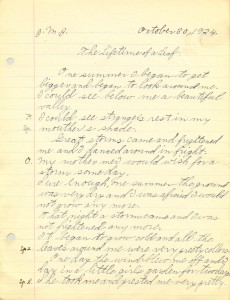 J. M. S. October 30, 1924.
The Lifetime of a Leaf
One summer I began to get
bigger and began to look around me.
I could see below me a beautiful
valley.
I could see strangers rest in my
mother's shade.
Great storms came and frightened
me and I danced around in fright.
O. My mother said would wish for a
storm someday.
Sure enough, one summer the ground
was very dry and I was afraid I would
not grow any more.
That night a storm came and I was
not frightened any more.
It began to grow cold and all the
Sp. leaves around me were very pretty colors.
One day the wind blew me off and I
lay in a little girls garden for two days
Sp. She took me and pressed me very pretty.